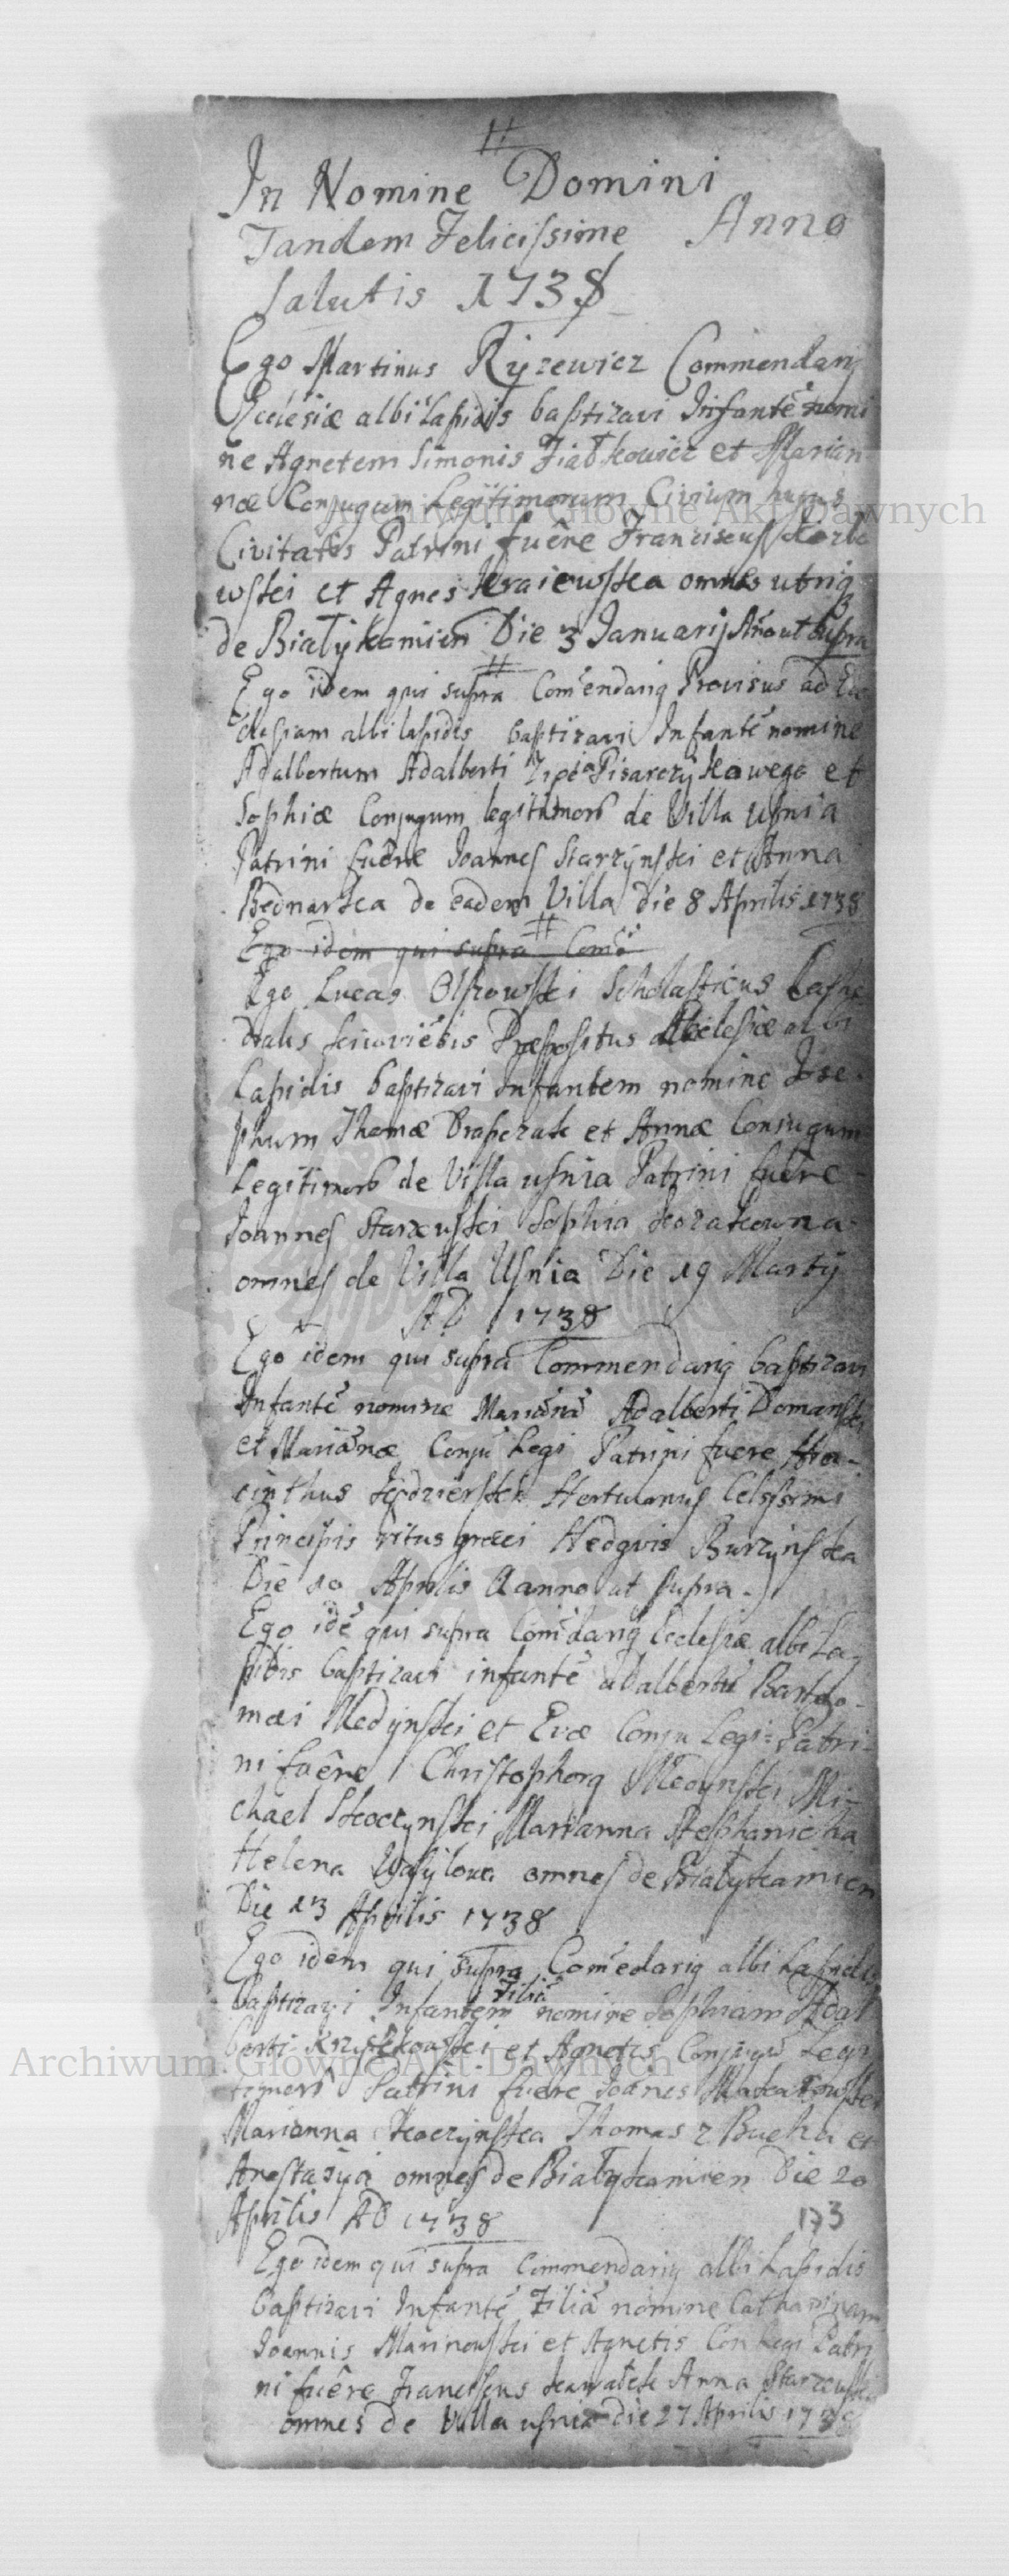 In Nomine Domini
Tandem Felicissime Anno
Salutis 1738
Ego Martinus Ryzewicz Commendariꝰ
Ecclesiæ albi Lapidis baptizavi Infantē nomi
ne Agnetem Simonis et Marian
næ Conjugum Legitimorum Civium hujus
Civitatis Patrini fuêre Franciscus
wski et Agnes Kraiewska omnes utriq
de Białykamien Die 3 Januarij Año ut supra
Ego idem qui supra Com̄endariꝰ Provisus ad Ec
clesiam albi lapidis baptizavi Infantē nomine
Adalbertum Adalberti Pisarczykowego et
Sophiæ Conjugum legitimorꝰ de Villa Usnia
Patrini fuêre Joannes Starzynski et Anna
Bednarska de eadem Villa die 8 Aprilis 1738
Ego idem qui supra Com̄e
Ego Lucas Olszowski Scholasticus Cathe
dralis Præpositus Ecclesiæ albi
Lapidis baptizavi Infantem nomine Jose
phum Thomæ et Annæ Conjugum
Legitimorꝰ de Villa usnia Patrini fuêre
Joannes Starzewski Sophia Kozakowna
omnes de Villa Usnia Die 19 Martij
AD 1738
Ego idem qui supra Commendariꝰ baptizavi
Infantē nomine Mariānā Adalberti Domanski
et Mariānæ Conju Legi Patrini fuere Hia-
cinthus Celsissimi
Principis ritus græci Hedgvis Burzynska
Die 10 Aprilis Aanno ut supra
Ego idē qui supra Com̄ēdariꝰ Ecclesiæ albi La
pidis baptizavi infantē adalbertū Bartho-
mæi Medynski et Evæ Conju Legi: Patri-
ni fuêre Christophorꝰ Medynski Mi-
chael Skoczynski Marianna Stephanicha
Helena Wasylowa omnes de Białykamien
Die 13 Aprilis 1738
Ego idem qui supra Com̄ēdariꝰ albi Lapidis
baptizavi Infantem Filiā nomine Sophiam Adal
berti et Agnetis Conjugū Legi
timorꝰ Patrini fuere Joānes
Marianna Skoczynska Thomas z Bucha et
Anastasya omnes de Białykamien Die 20
Aprilis AD 1738
173
Ego idem qui supra Commendariꝰ albi Lapidis
baptizavi Infantē Filiā nomine Catharinam
Joannis Marinowski et Agnetis Con Legi Patri
ni fuêre Franciscus Anna
omnes de Villa usnia die 27 Aprilis 1738
Archiwum Główne Akt Dawnych
Archiwum Główne Akt Dawnych